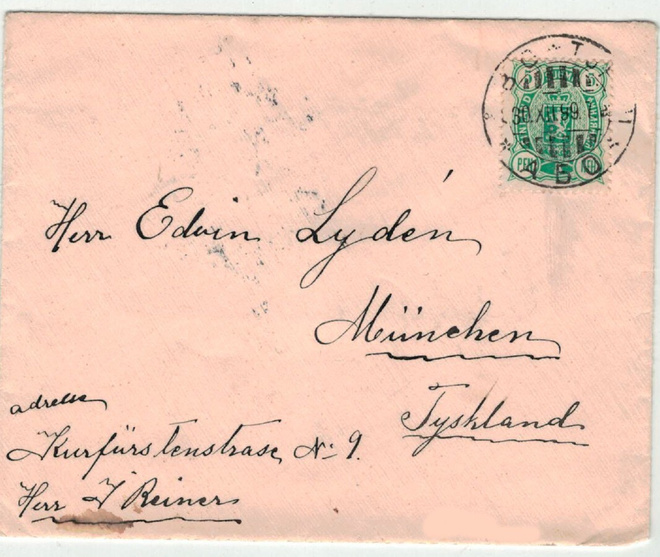 30.XII.99
АБО
Herr Edvin Lydén
München
Tyskland
adresse
Kurfürstenstrase No 9.
Herr J Reiners